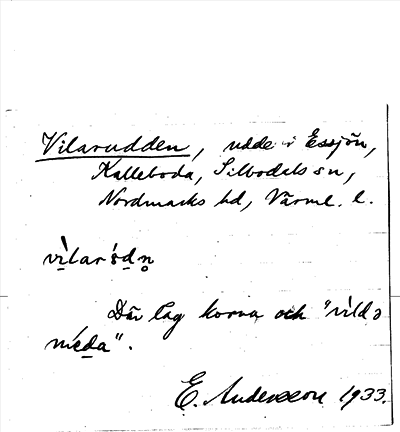 Vilarudden, udde i Essjön,
Kalleboda, Silbodals sn,
Nordmarks hd, Värml. l.
Där låg korna och "vild
E. Andersson 1933.